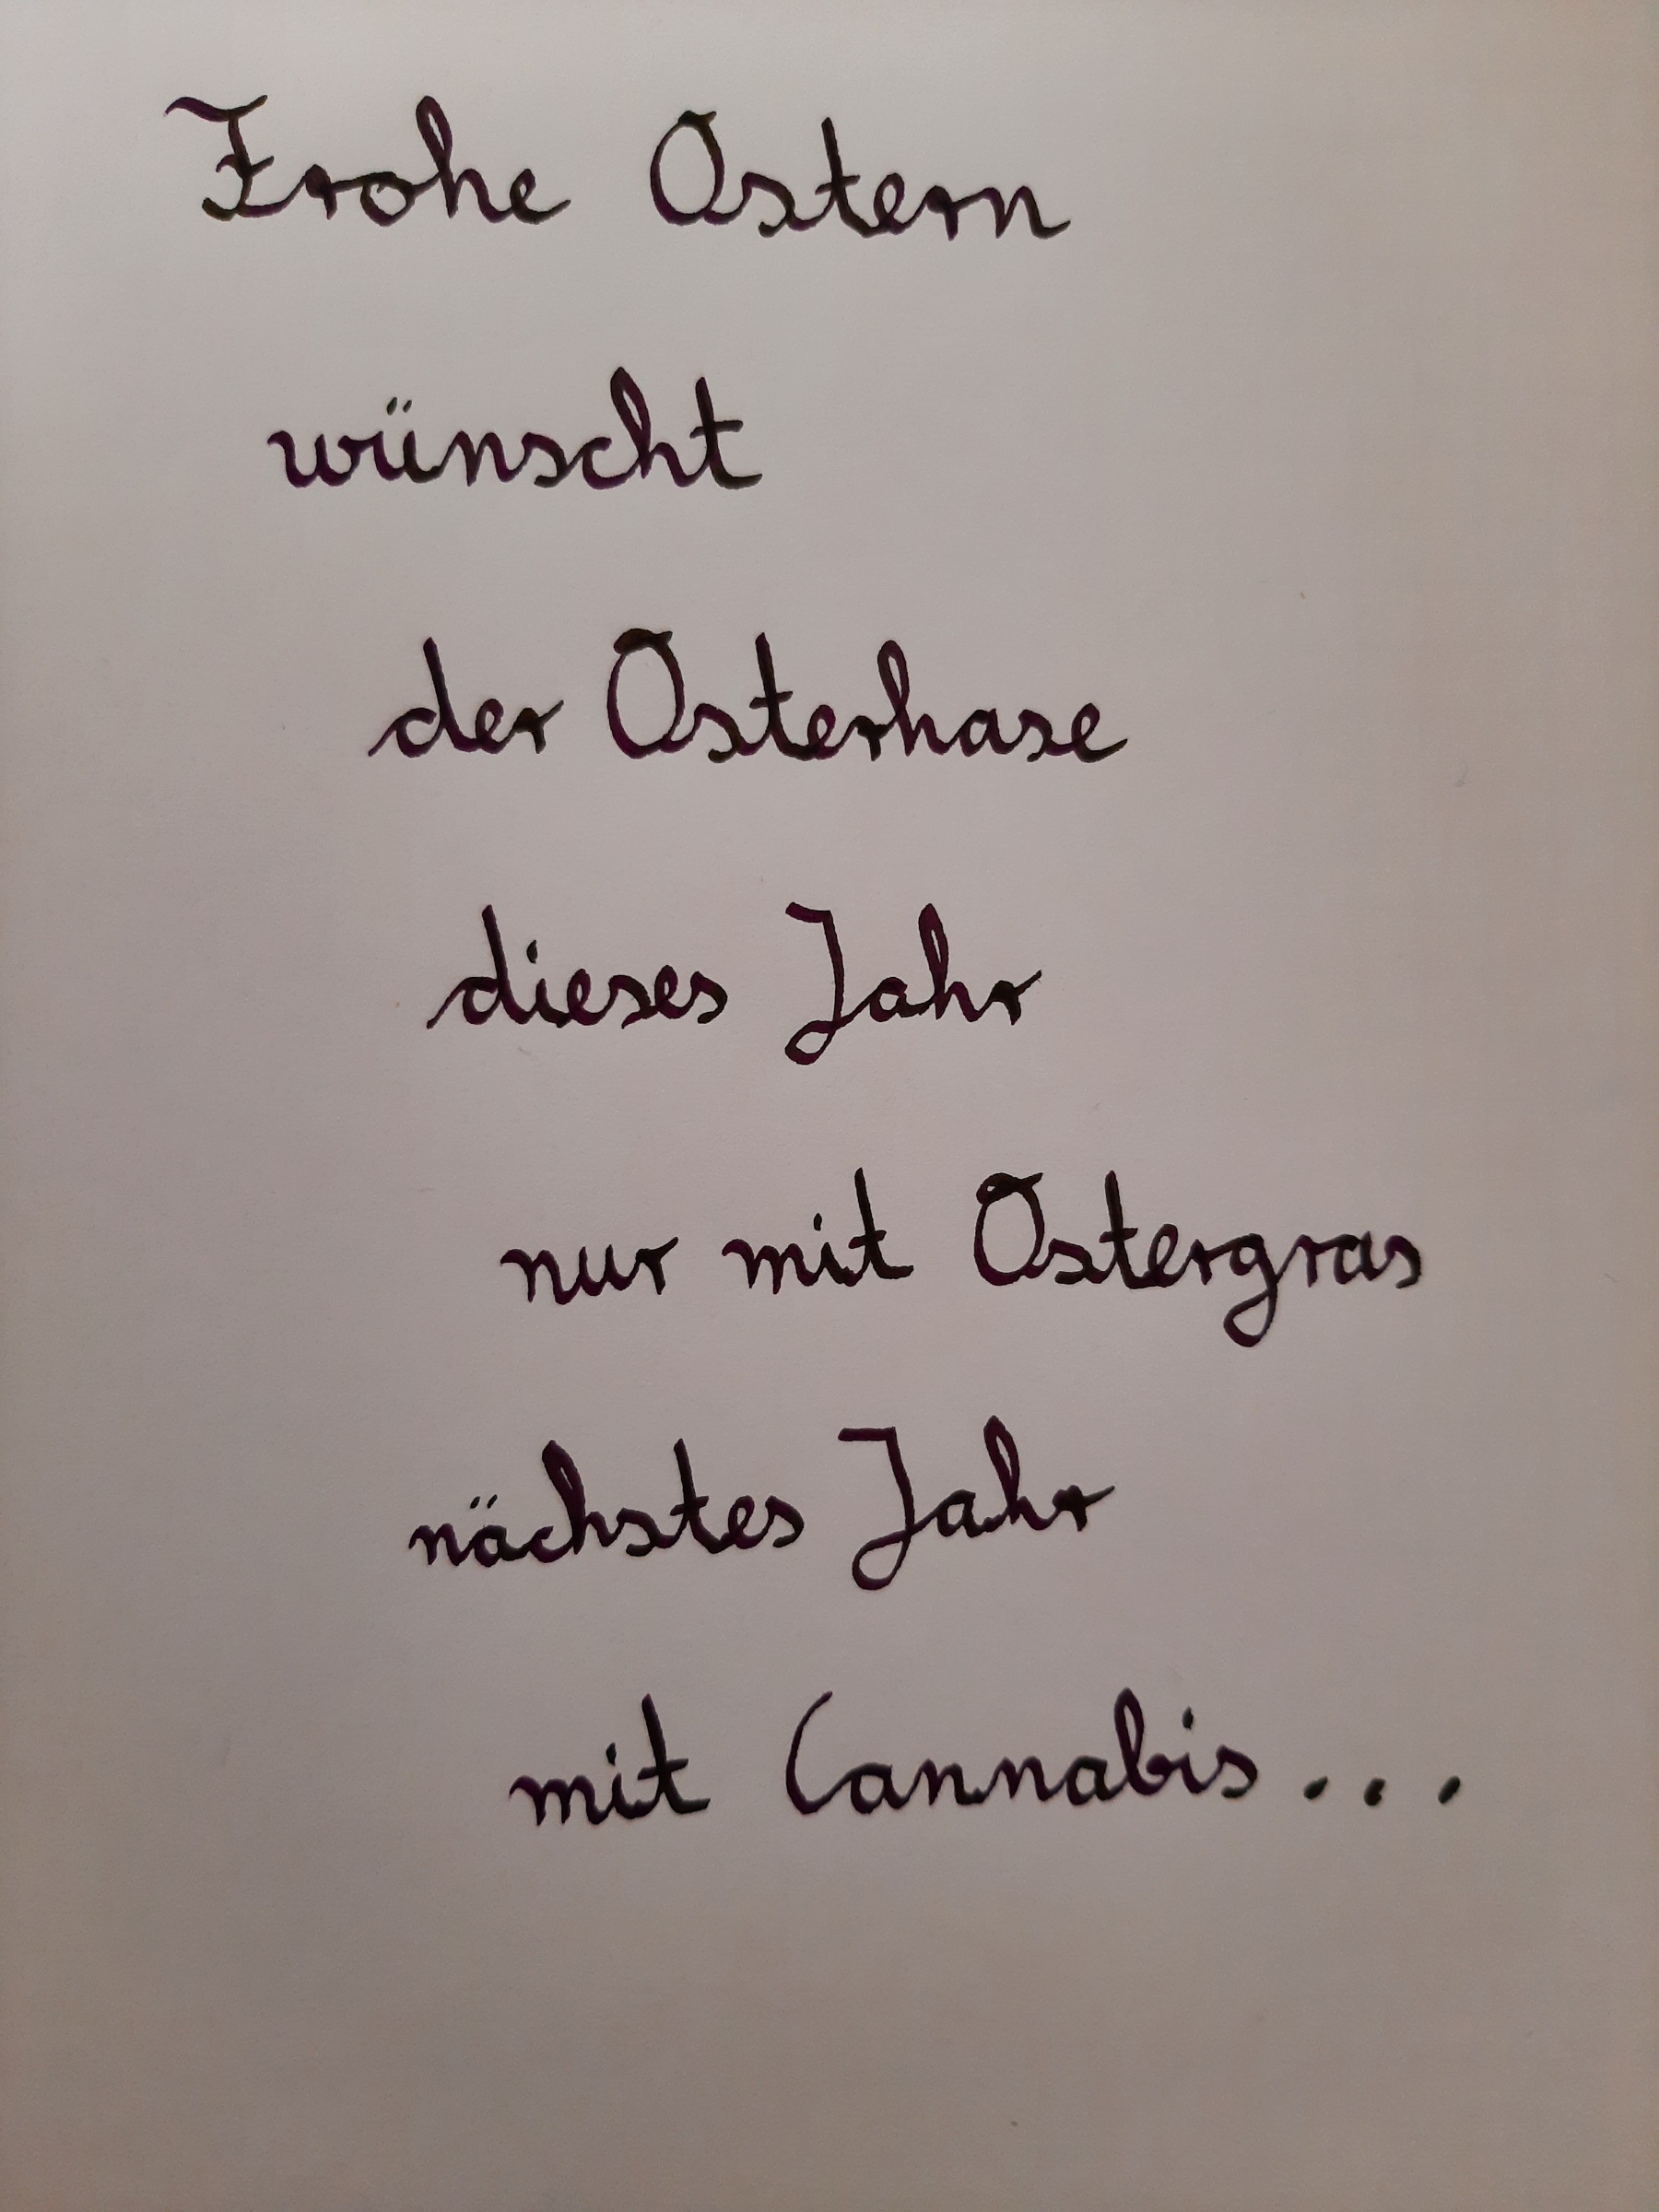 Frohe Ostern
wünscht
der Osterhase
dieses Jahr
nur mit Ostergras
nächstes Jahr
mit Cannabis...